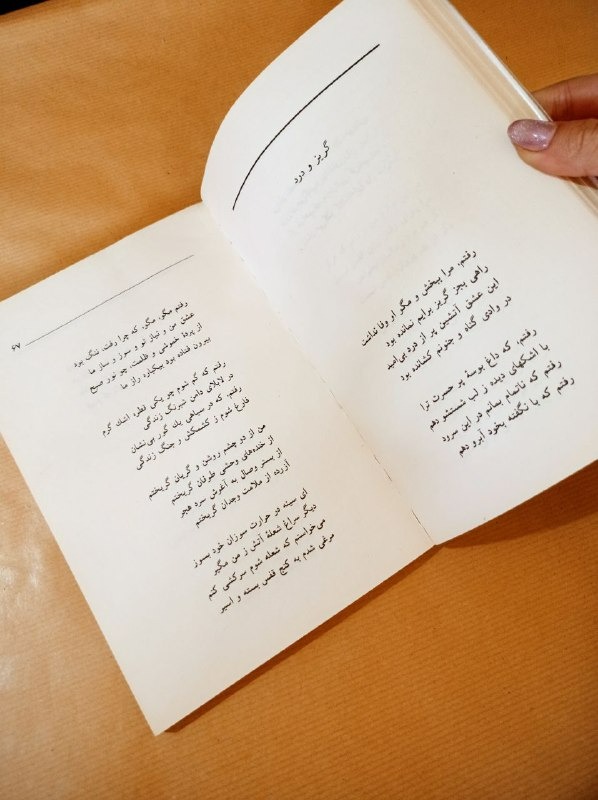 گریز و درد
رفتم، مرا ببخش و مگو او وفا نداشت
راهی بجز گریز برایم نمانده بود
این عشق آتشین پر از درد بی‌امید
در وادی گناه و جنونم کشانده بود
رفتم، که داغ بوسهٔ پر حسرت ترا
با اشکهای دیده ز لب شستشو دهم
رفتم که ناتمام بمانم در این سرود
رفتم که با نگفته بخود آبرو دهم
۶۷
رفتم مگو، مگو، که چرا رفت، ننگ بود
عشق من و نیاز تو و سوز و ساز ما
از پردهٔ خموشی و ظلمت، چو نور صبح
بیرون فتاده بود بیکباره راز ما
رفتم که گم شوم چو یکی قطره اشک گرم
در لابلای دامن شبرنگ زندگی
رفتم، که در سیاهی یک گور بی‌نشان
فارغ شوم ز کشمکش و جنگ زندگی
من از دو چشم روشن و گریان گریختم
از خنده‌های وحشی طوفان گریختم
از بستر وصال به آغوش سرد هجر
آزرده از ملامت وجدان گریختم
ای سینه در حرارت سوزان خود بسوز
دیگر سراغ شعلهٔ آتش ز من مگیر
می‌خواستم که شعله شوم سرکشی کنم
مرغی شدم به کنج قفس بسته و اسیر